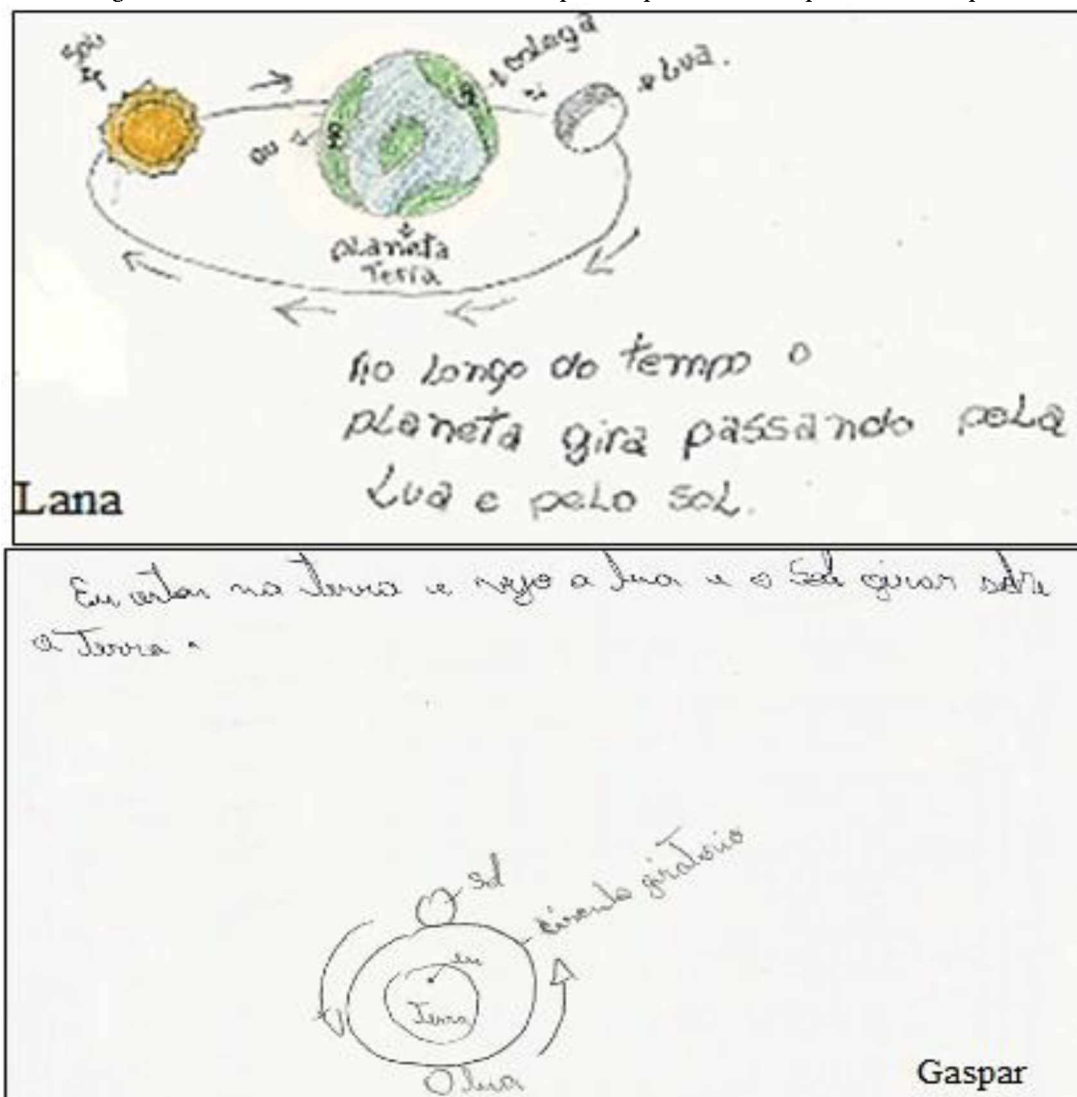 Sol
eu
colega
Lua.
planeta
Terra
Ao longo do tempo o
planeta gira passando pela
Lua e pelo sol.
Lana
Eu estou na Terra e vejo a lua e o Sol girar sobre
a Terra.
Sol
circulo giratorio
eu
Terra
lua
Gaspar